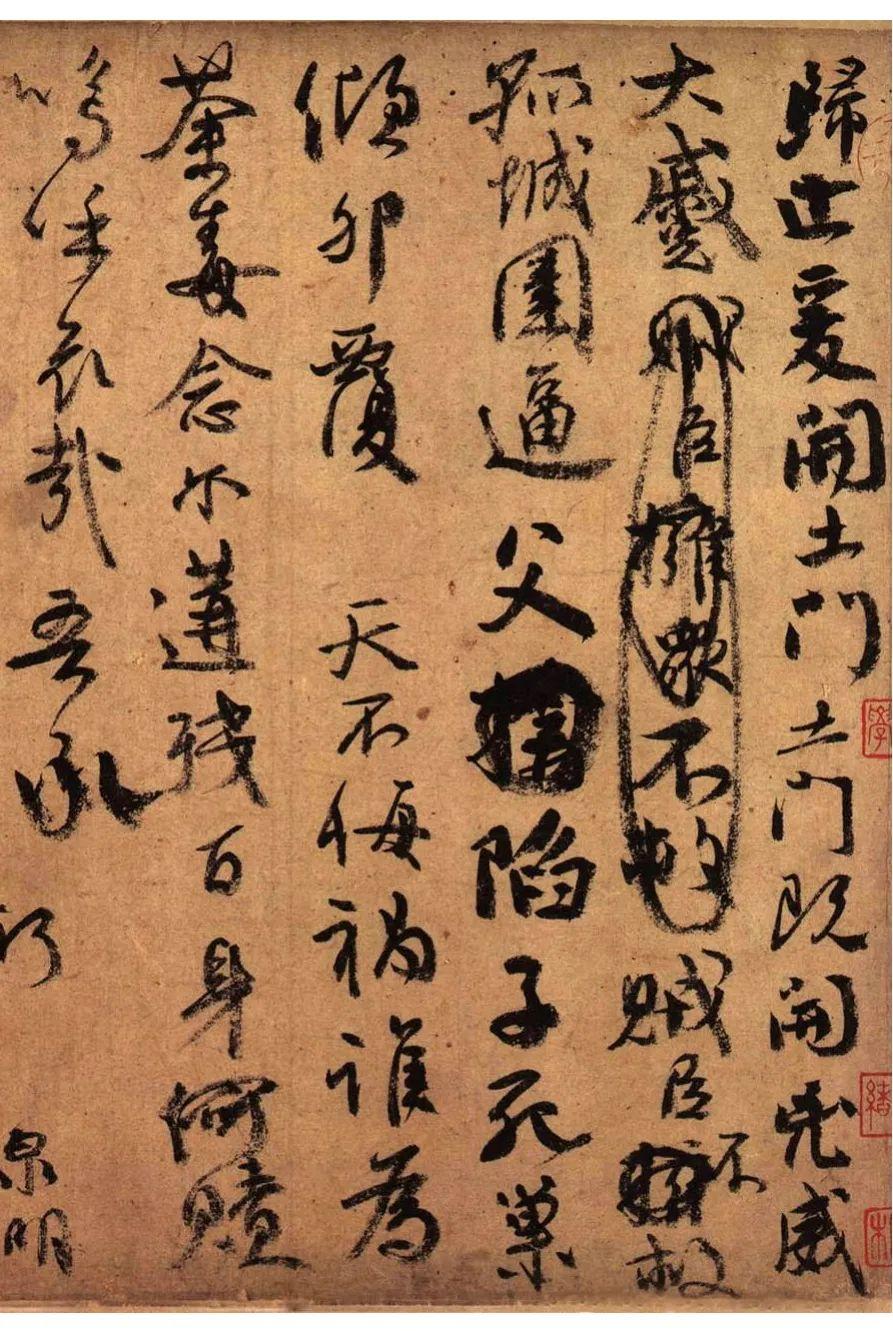 歸止爰開土門土門既開兇威
大蹙賊臣擁衆不救賊臣不救
孤城圍逼父陷子死巢
傾卵覆天不悔禍誰為
荼毒念尔遘殘百身何贖
嗚呼哀哉吾承
泉明